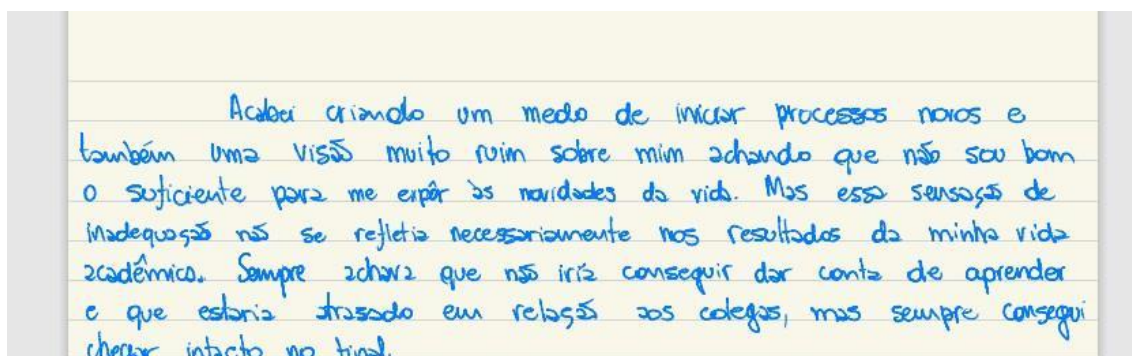 Acabei criando um medo de iniciar processos novos e
também uma visão muito ruim sobre mim achando que não sou bom
o suficiente para me expôr às novidades da vida. Mas essa sensação de
inadequação não se refletia necessariamente nos resultados da minha vida
acadêmica. Sempre achava que não iria conseguir dar conta de aprender
e que estaria atrasado em relação aos colegas, mas sempre consegui
chegar intacto no final.